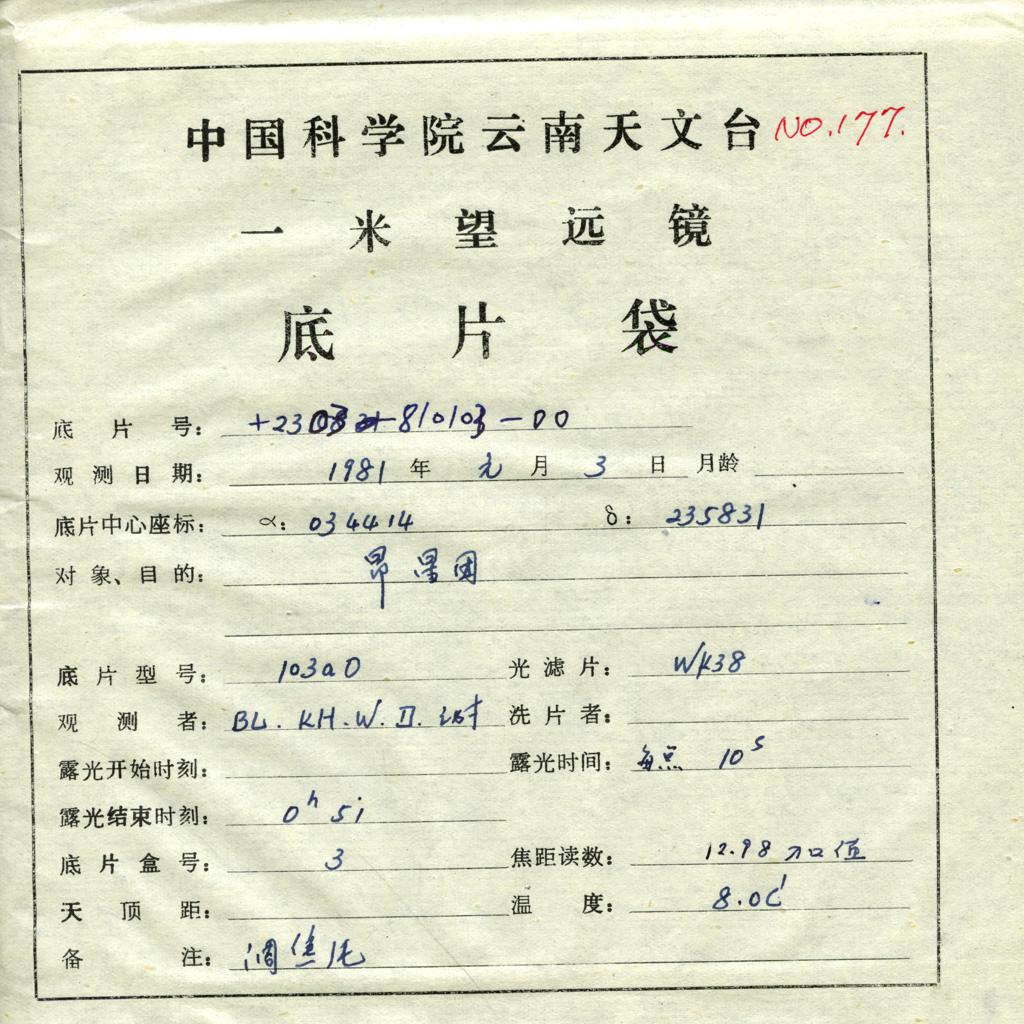 中国科学院云南天文台 NO.177.
一米望远镜
底片袋
底片号: +23 -810103-00
观测日期: 1981年元月3日 月龄
底片中心座标: α: 034414 δ: 235831
对象、目的: 昴星团
底片型号: 103aO 光滤片: WK38
观测者: BL. KH.W. II. 洗片者:
露光开始时刻: 露光时间: 每点 10s
露光结束时刻: 0h 51
底片盒号: 3 焦距读数: 12.98
天顶距: 温度: 8.0C
备注: 调焦